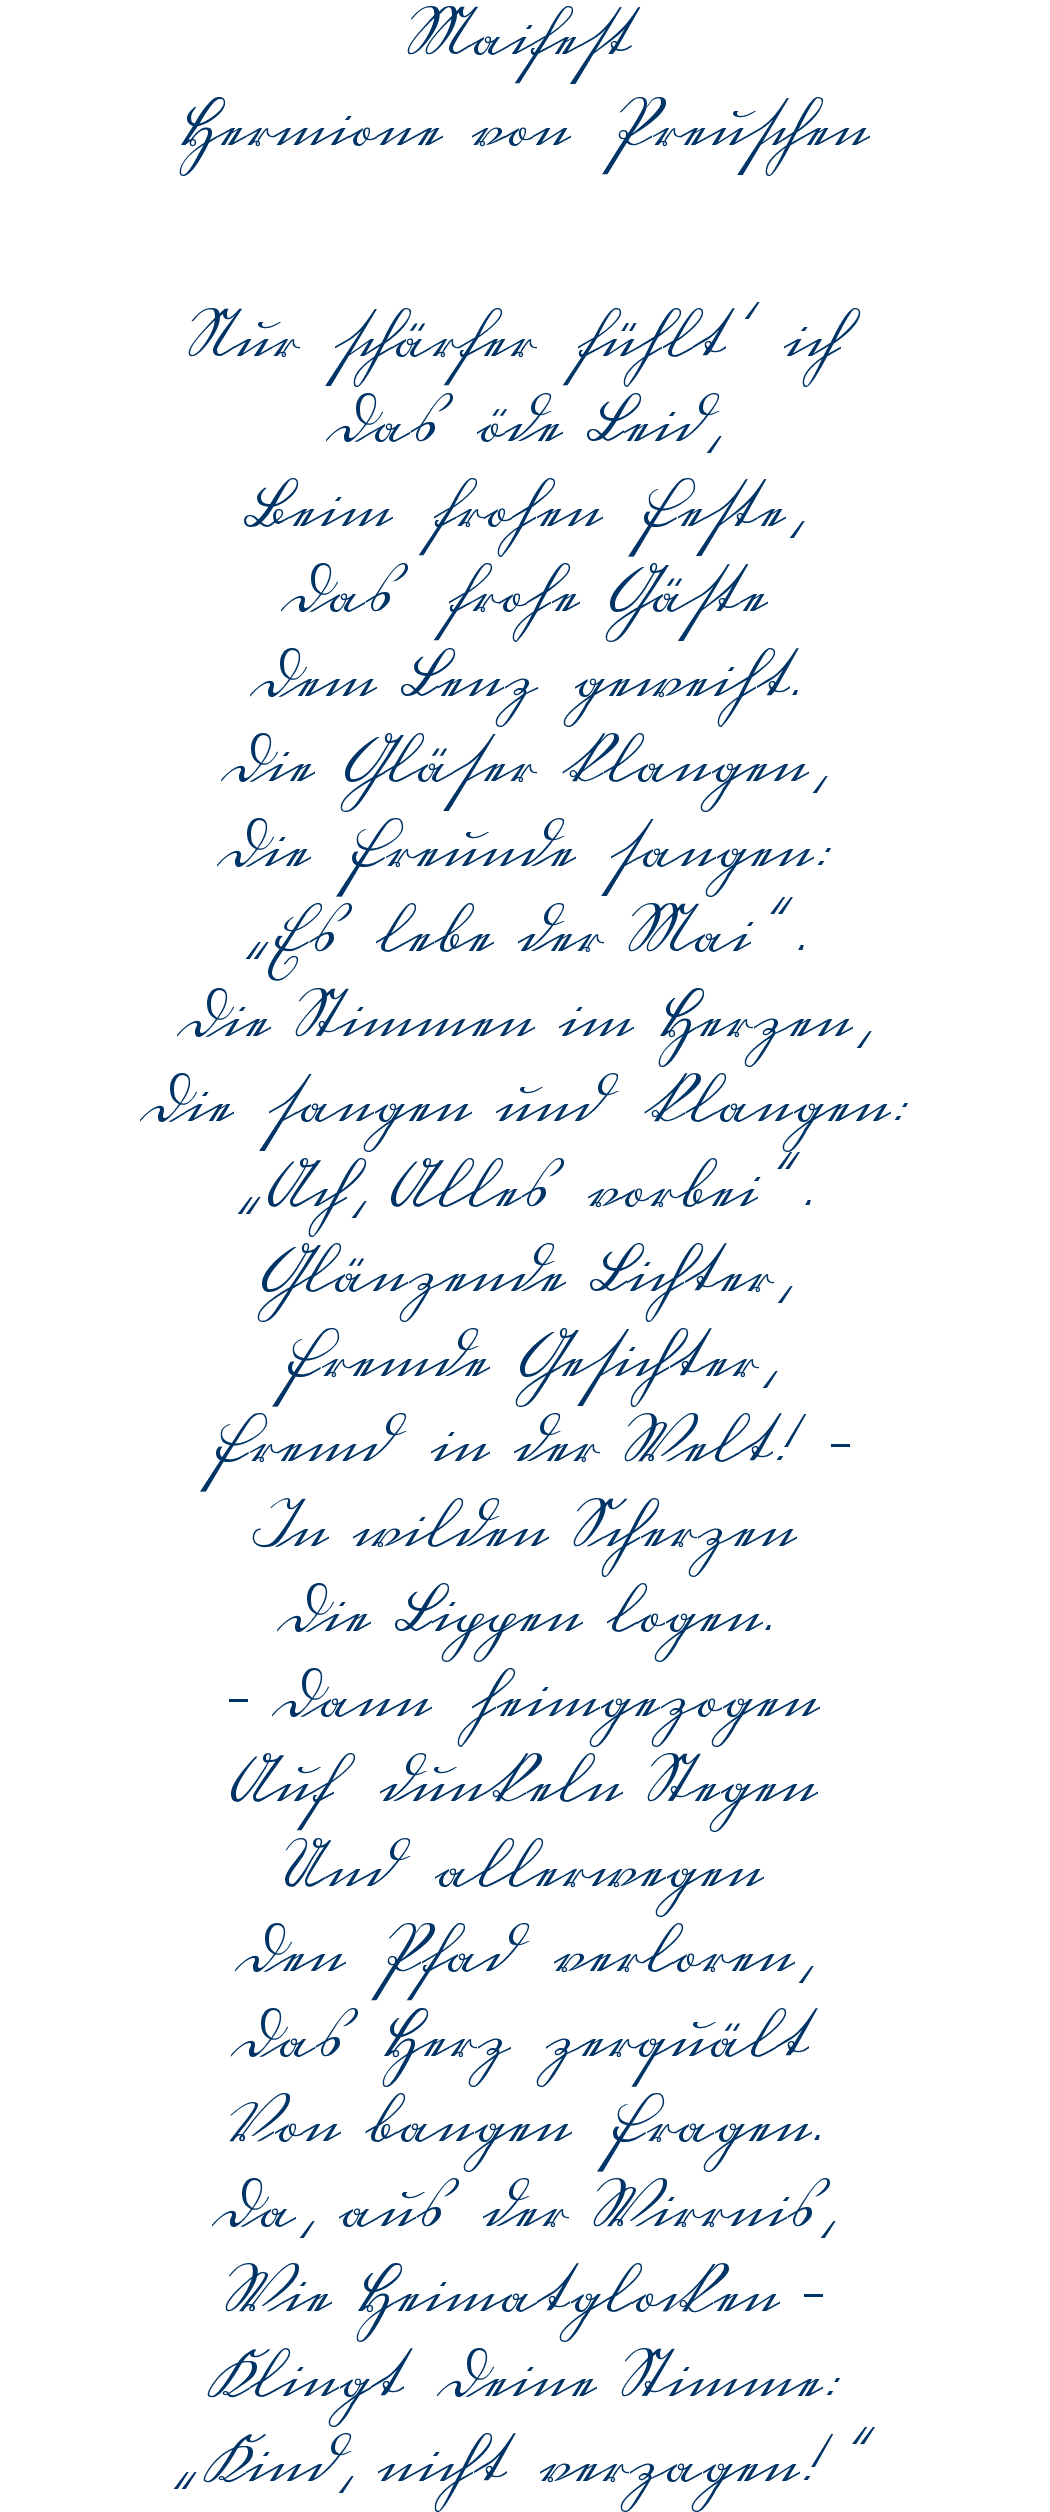 Maifest
Hermione von Preuschen
Nur schärfer fühlt' ich
Das öde Leid,
Beim frohen Feste,
Das frohe Gäste
Dem Lenz geweiht.
Die Gläser klangen,
Die Freunde sangen:
„Es lebe der Mai“.
Die Stimmen im Herzen,
Die sangen und klangen:
„Ach, Alles vorbei“.
Glänzende Lichter,
Fremde Gesichter,
Fremd in der Welt! –
In wilden Scherzen
Die Lippen logen.
– Dann heimgezogen
Auf dunkeln Stegen
Und allerwegen
Den Pfad verloren,
Das Herz zerquält
Von bangen Fragen.
Da, aus der Wirrnis,
Wie Heimatglocken –
Klingt Deine Stimme:
„Kind, nicht verzagen!“